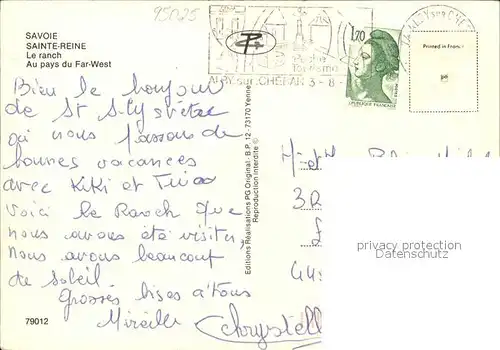 95025
SAVOIE
SAINTE-REINE
Le ranch
Au pays du Far-West
Bien le bonjour
de St
où nous passons de
bonnes vacances
avec KiKi et
Voici le Ranch que
nous avons été visiter,
nous avons beaucoup
de soleil.
Grosses bises à tous
Mireille Chrystell
79012
Editions Réalisations PG Original - B.P. 12 - 73170 Yenne
Reproduction interdite ©
Pêche
Tourisme
ALBY-sur-CHERAN 3-8
1,70
REPUBLIQUE FRANÇAISE
Printed in France
M et M
3 R
privacy protection
Datenschutz
44